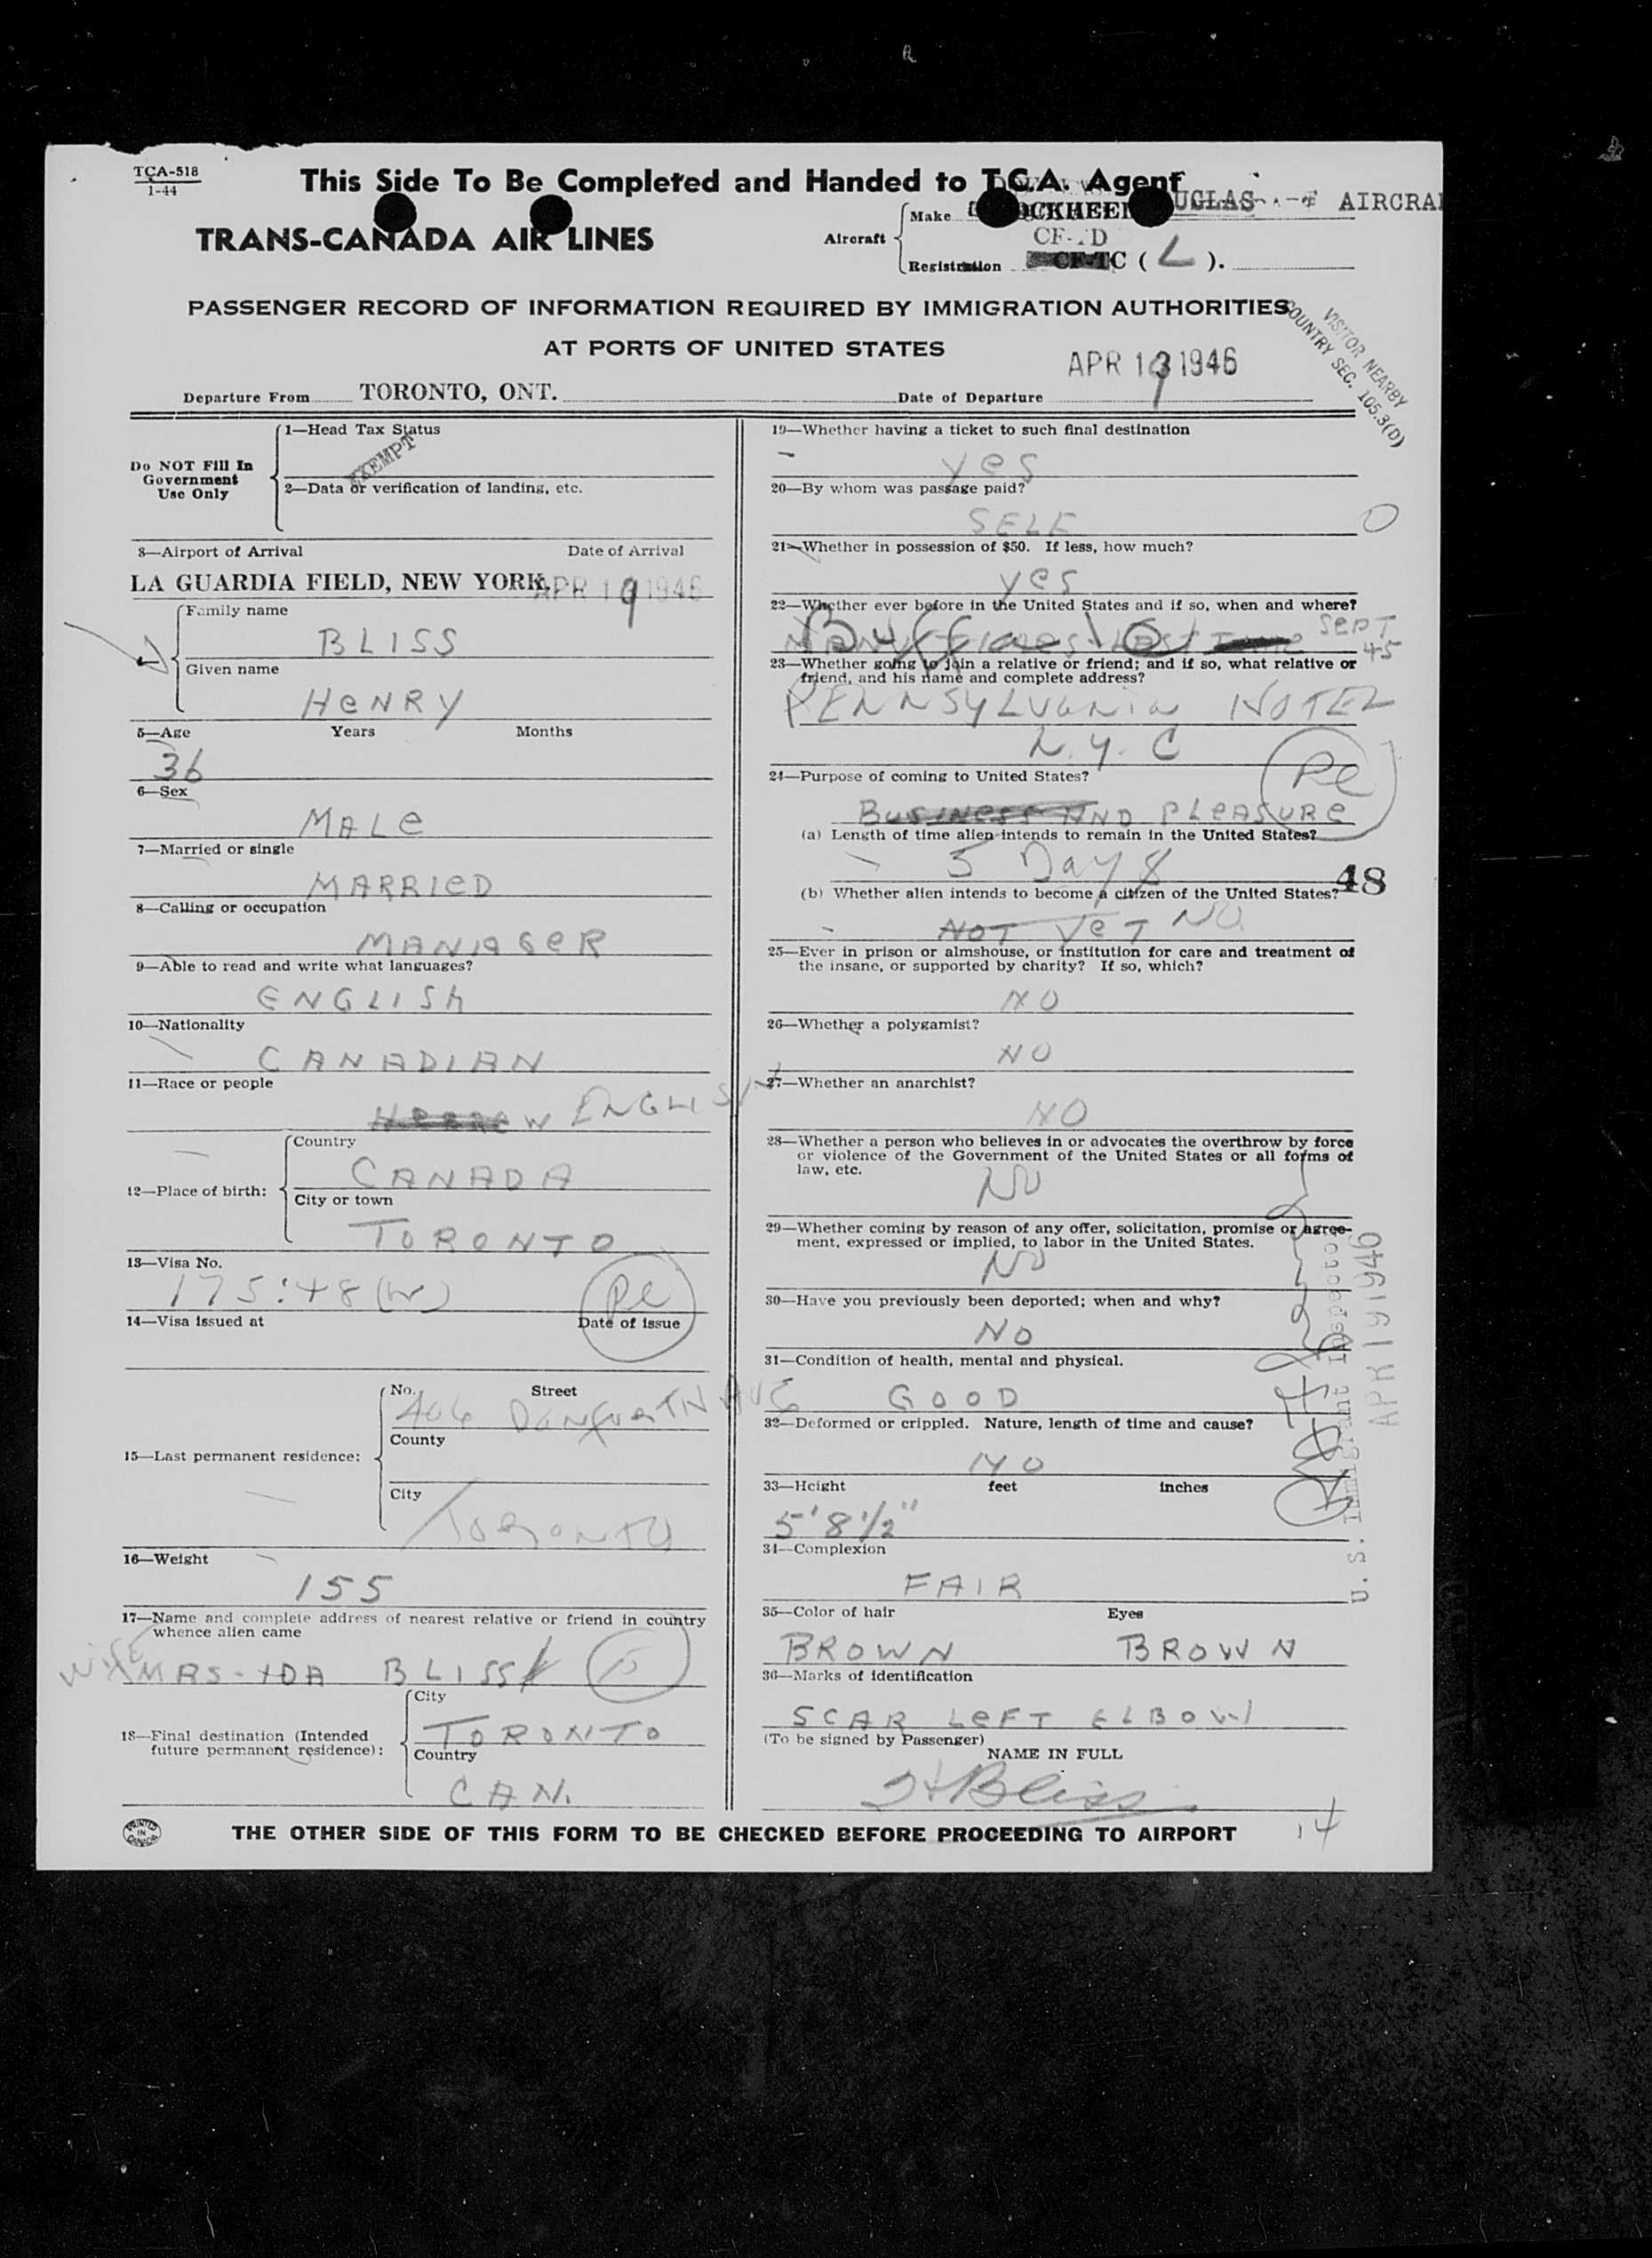 TCA-518
1-44
This Side To Be Completed and Handed to T.C.A. Agent
TRANS-CANADA AIR LINES
Aircraft
Make
UGLAS AIRCRA
CF- D
Registration CF-TC ( L ).
PASSENGER RECORD OF INFORMATION REQUIRED BY IMMIGRATION AUTHORITIES
AT PORTS OF UNITED STATES
VISITOR NEARBY
COUNTRY SEC. 105.3(D)
Departure From TORONTO, ONT.
Date of Departure APR 19 1946
Do NOT Fill In
Government
Use Only
1—Head Tax Status
EXEMPT
2—Data or verification of landing, etc.
3—Airport of Arrival Date of Arrival
LA GUARDIA FIELD, NEW YORK. APR 19 1946
Family name
BLISS
Given name
HENRY
5—Age Years Months
36
6—Sex
MALE
7—Married or single
MARRIED
8—Calling or occupation
MANAGER
9—Able to read and write what languages?
ENGLISH
10—Nationality
CANADIAN
11—Race or people
HEBREW ENGLISH
12—Place of birth:
Country
CANADA
City or town
TORONTO
13—Visa No.
175:48(W)
14—Visa issued at Date of issue
15—Last permanent residence:
No. Street
406 DANFORTH AVE
County
City
TORONTO
16—Weight
155
17—Name and complete address of nearest relative or friend in country
whence alien came
WIFE MRS-IDA BLISS
18—Final destination (Intended
future permanent residence):
City
TORONTO
Country
CAN.
19—Whether having a ticket to such final destination
YES
20—By whom was passage paid?
SELF
21—Whether in possession of $50. If less, how much?
YES
22—Whether ever before in the United States and if so, when and where?
MANY TIMES LAST Buffalo SEPT
45
23—Whether going to join a relative or friend; and if so, what relative or
friend, and his name and complete address?
PENNSYLVANIA HOTEL
N.Y.C
24—Purpose of coming to United States?
BUSINESS AND PLEASURE
(a) Length of time alien intends to remain in the United States?
5 DAYS
48
(b) Whether alien intends to become a citizen of the United States?
NOT YET NO
25—Ever in prison or almshouse, or institution for care and treatment of
the insane, or supported by charity? If so, which?
NO
26—Whether a polygamist?
NO
27—Whether an anarchist?
NO
28—Whether a person who believes in or advocates the overthrow by force
or violence of the Government of the United States or all forms of
law, etc.
NO
29—Whether coming by reason of any offer, solicitation, promise or agree-
ment, expressed or implied, to labor in the United States.
NO
30—Have you previously been deported; when and why?
NO
31—Condition of health, mental and physical.
GOOD
32—Deformed or crippled. Nature, length of time and cause?
NO
33—Height feet inches
5'8 1/2"
34—Complexion
FAIR
35—Color of hair Eyes
BROWN BROWN
36—Marks of identification
SCAR LEFT ELBOW
(To be signed by Passenger)
NAME IN FULL
H Bliss
U.S. Immigrant Inspector
APR 19 1946
PRINTED
IN
CANADA
THE OTHER SIDE OF THIS FORM TO BE CHECKED BEFORE PROCEEDING TO AIRPORT
14